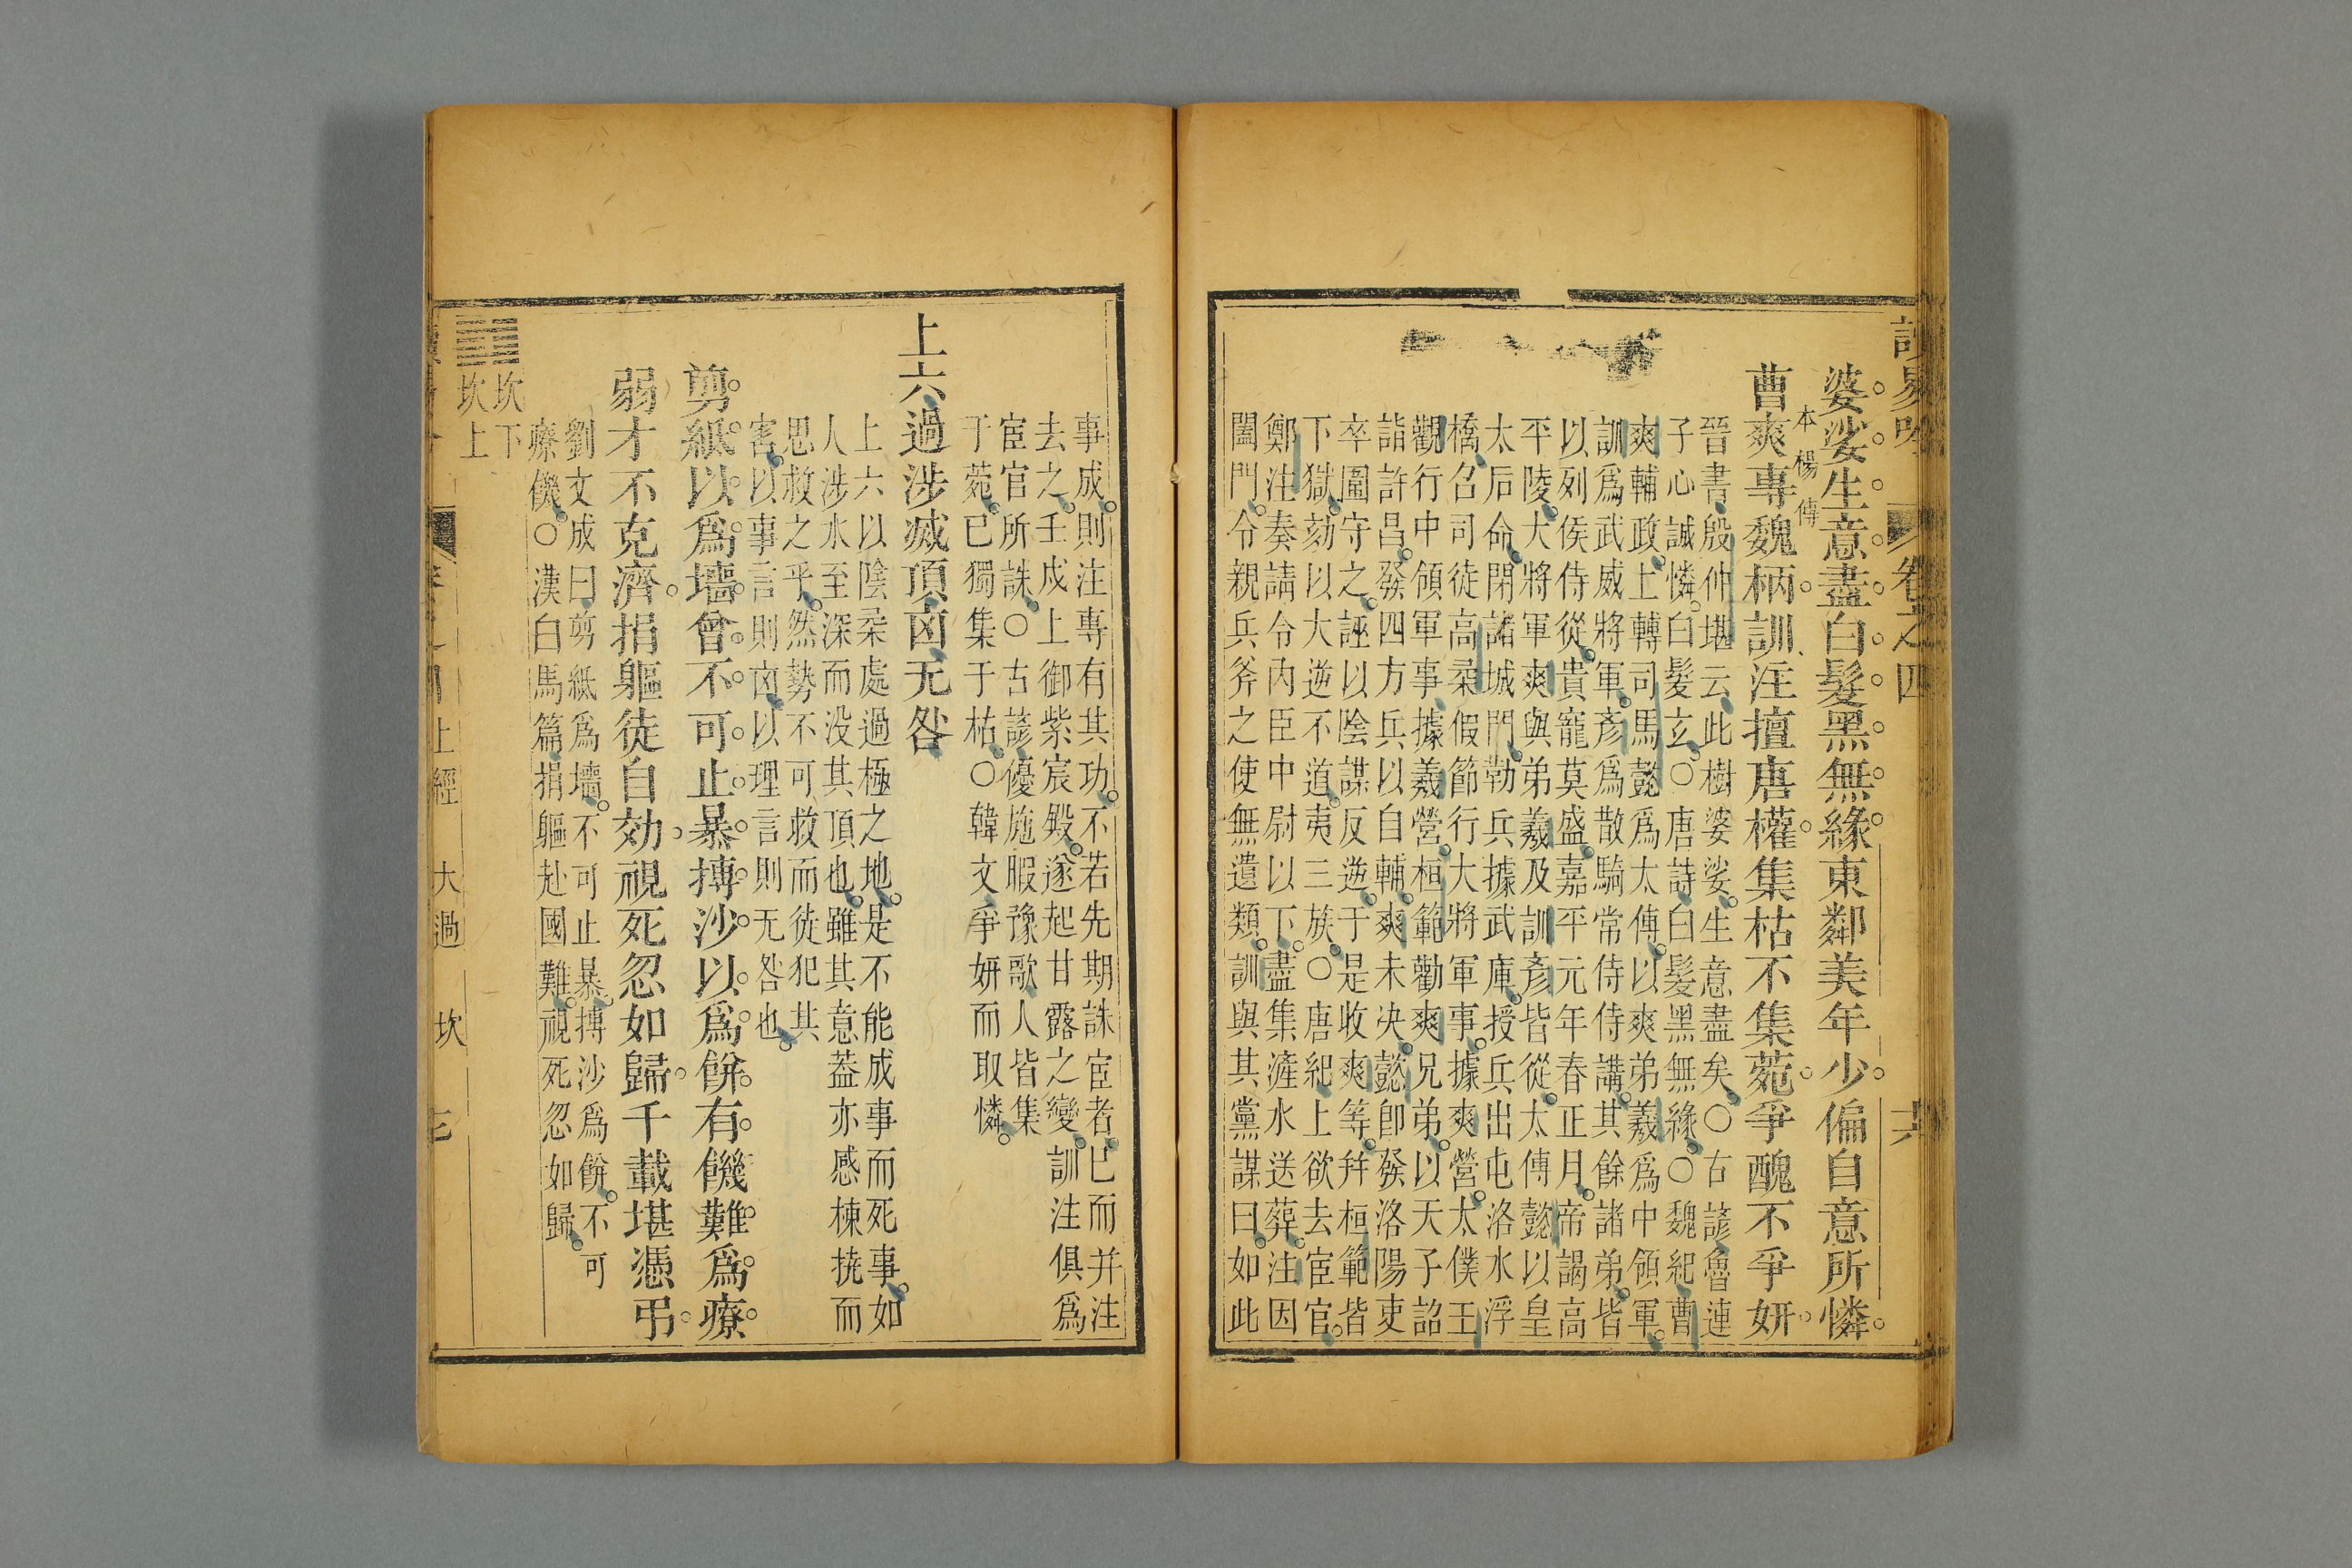 卷之四
婆娑生意盡白髮黑無緣東鄰美年少偏自意所憐
本楊傳
曹爽專魏柄訓注擅唐權集枯不集菀爭醜不爭妍
晉書殷仲堪云此樹婆娑生意盡矣○古諺魯連
子心誠憐白髮玄○唐詩白髮黑無緣○魏紀曹
爽輔政上轉司馬懿爲太傅以爽弟羲爲中領軍
訓爲武威將軍彥爲散騎常侍侍講其餘諸弟皆
以列侯侍從貴寵莫盛嘉平元年春正月帝謁高
平陵大將軍爽與弟羲及訓彥皆從太傅懿以皇
太后命閉諸城門勒兵據武庫授兵出屯洛水浮
橋召司徒高柔假節行大將軍事據爽營太僕王
觀行中領軍事據羲營桓範勸爽兄弟以天子詔
詣許昌發四方兵以自輔爽未决懿卽發洛陽吏
卒圍守之誣以陰謀反逆于是收爽等并桓範皆
下獄劾以大逆不道夷三族○唐紀上欲去宦官
鄭注奏請令內臣中尉以下盡集滻水送葬注因
闔門令親兵斧之使無遺類訓與其黨謀曰如此
事成則注專有其功不若先期誅宦者已而并注
去之壬戌上御紫宸殿遂起甘露之變訓注俱爲
宦官所誅○古諺優施暇豫歌人皆集
于菀已獨集于枯○韓文爭妍而取憐
上六過涉滅頂凶无咎
上六以陰柔處過極之地是不能成事而死事如
人涉水至深而没其頂也雖其意葢亦感棟撓而
思救之乎然勢不可救而徒犯其
害以事言則凶以理言則无咎也
剪紙以爲墻曾不可止暴摶沙以爲餅有饑難爲療
弱才不克濟捐軀徒自効視死忽如歸千載堪憑弔
劉文成曰剪紙爲墻不可止暴摶沙爲餅不可
療饑○漢白馬篇捐軀赴國難視死忽如歸
坎下
坎上
上經 大過 坎